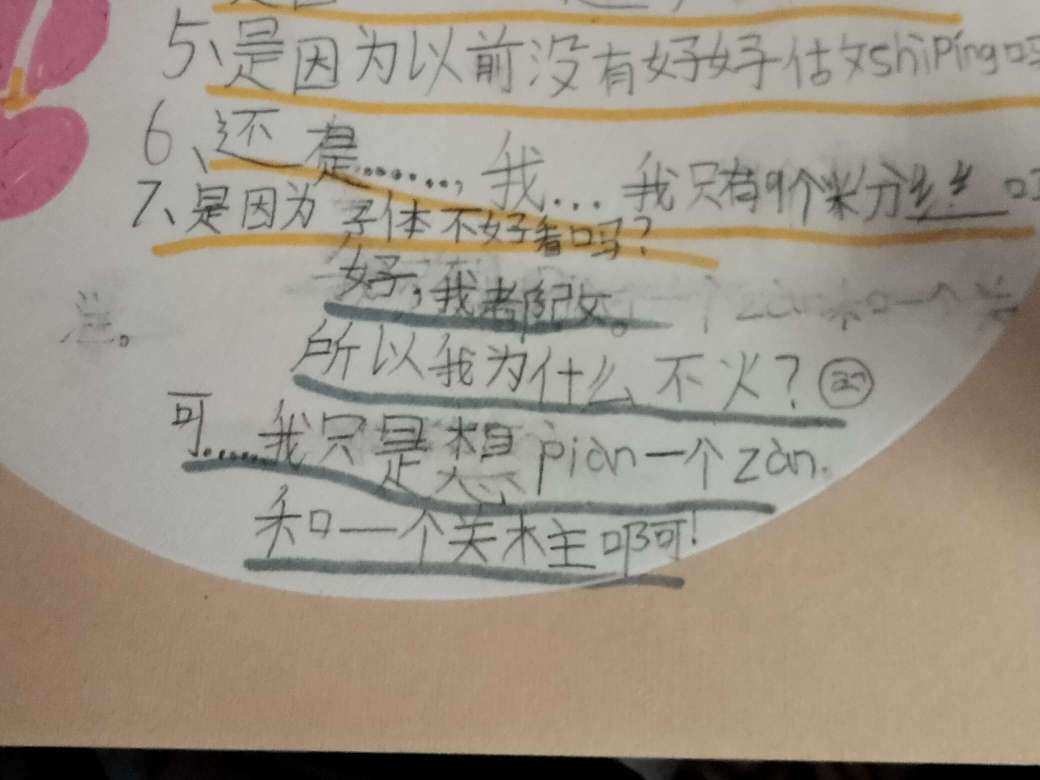 5、是因为以前没有好好估文shiPing吗
6、还是……,我…我只有9个米分丝
7、是因为子体不好看吗?
好,我都改。
注。
所以我为什么不火?
可……我只是想pian一个zan.
和一个关木主啊!